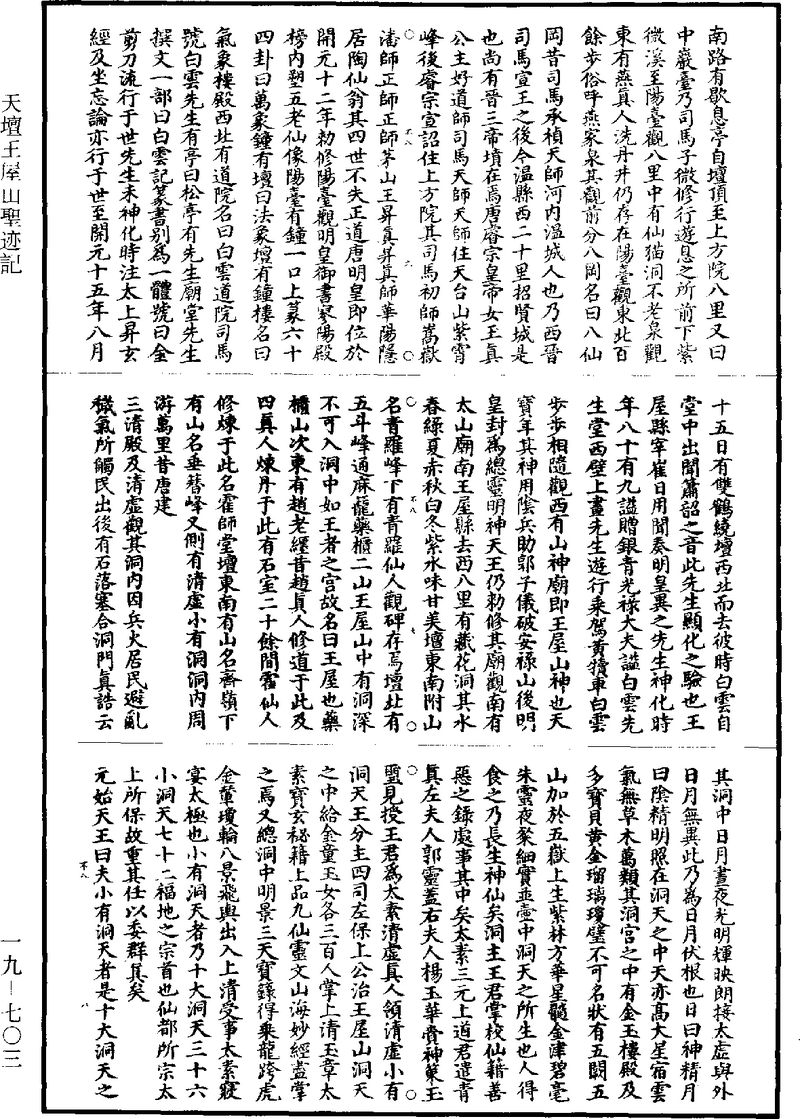 天壇王屋山聖迹記
一九—七〇三
南路有歇息亭自壇頂至上方院八里又曰
中巖臺乃司馬子微修行遊息之所前下紫
微溪至陽臺觀八里中有仙猫洞不老泉觀
東有燕真人洗丹井仍存在陽臺觀東北百
餘步俗呼燕家泉其觀前分八岡名曰八仙
岡昔司馬承楨天師河内溫城人也乃西晉
司馬宣王之後今溫縣西二十里招賢城是
也尚有晉三帝墳在焉唐睿宗皇帝女玉真
公主好道師司馬天師天師住天台山紫霄
峰後睿宗宣詔住上方院其司馬初師嵩嶽
潘師正師正師茅山王昇真昇真師華陽隱
居陶仙翁其四世不失正道唐明皇即位於
開元十二年勑修陽臺觀明皇御書寥陽殿
榜内塑五老仙像陽臺有鐘一口上篆六十
四卦曰萬象鐘有壇曰法象壇有鐘樓名曰
氣象樓殿西北有道院名曰白雲道院司馬
號白雲先生有亭曰松亭有先生廟堂先生
撰文一部曰白雲記篆書别為一體號曰金
剪刀流行于世先生未神化時注太上昇玄
經及坐忘論亦行于世至開元十五年八月
十五日有雙鶴繞壇西北而去彼時白雲自
堂中出聞簫韶之音此先生顯化之驗也王
屋縣宰崔日用聞奏明皇異之先生神化時
年八十有九謚贈銀青光禄大夫謚白雲先
生堂西壁上畫先生遊行乘駕黄犢車白雲
步步相隨觀西有山神廟即王屋山神也天
寶年其神用陰兵助郭子儀破安禄山後明
皇封為總靈明神天王仍勑修其廟觀南有
太山廟南王屋縣去西八里有藏花洞其水
春綠夏赤秋白冬紫水味甘美壇東南附山
名青羅峰下有青羅仙人觀碑存焉壇北有
五斗峰通麻籠藥櫃二山王屋山中有洞深
不可入洞中如王者之宫故名曰王屋也藥
櫃山次東有趙老經昔趙真人修道于此及
四真人煉丹于此有石室二十餘間霍仙人
修煉于此名霍師堂壇東南有山名齊嶺下
有山名垂簪峰又側有清虛小有洞洞内周
游萬里昔唐建
三清殿及清虛觀其洞内因兵火居民避亂
穢氣所觸民出後有石落塞合洞門真誥云
其洞中日月晝夜光明輝映朗接太虛與外
日月無異此乃為日月伏根也日曰神精月
曰陰精明照在洞天之中天亦高大星宿雲
氣無草木萬類其洞宫之中有金玉樓殿及
多寶貝黄金瑠璃瓊璧不可名狀有五闕五
山加於五嶽上生紫林方華星髓金津碧毫
朱靈夜粲細實並壺中洞天之所生也人得
食之乃長生神仙矣洞主王君掌校仙籍善
惡之録處事其中矣太素三元上道君遣青
真左夫人郭靈蓋右夫人楊玉華賫神策玉
璽見授王君為太素清虛真人領清虛小有
洞天王分主四司左保上公治王屋山洞天
之中給金童玉女各三百人掌上清玉章太
素寶玄秘籍上品九仙靈文山海妙經盡掌
之焉又總洞中明景三天寶籙得乘龍跨虎
金輦瓊輪八景飛輿出入上清受事太素寢
宴太極也小有洞天者乃十大洞天三十六
小洞天七十二福地之宗首也仙都所宗太
上所保故重其任以委群真矣
元始天王曰夫小有洞天者是十大洞天之